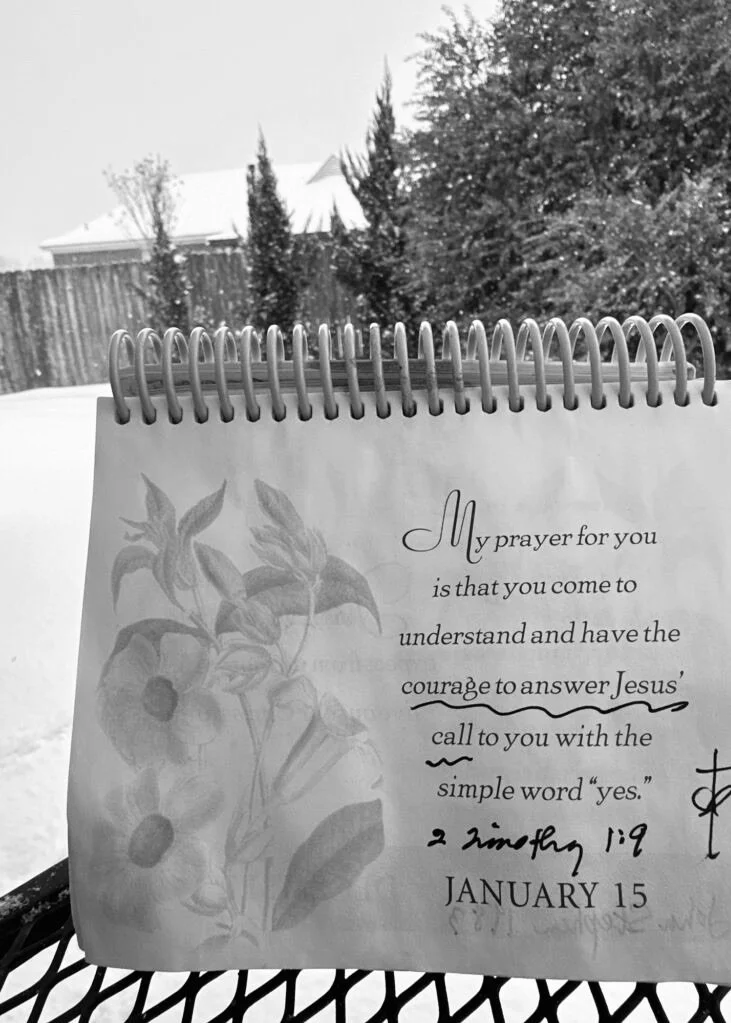 My prayer for you
is that you come to
understand and have the
courage to answer Jesus’
call to you with the
simple word “yes.”
2 Timothy 1:9
JANUARY 15
John Stephen 198